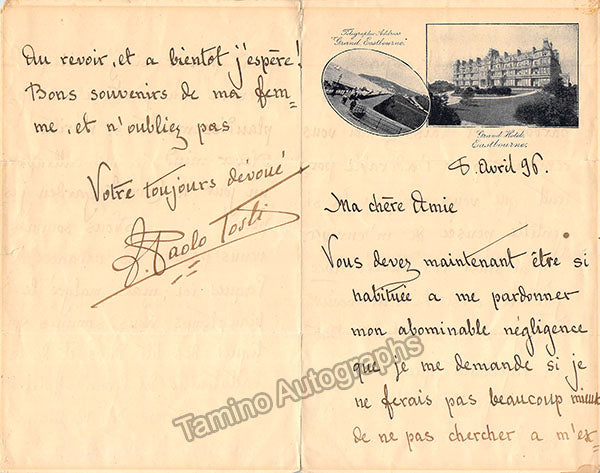 Au revoir, et a bientot j'espère!
Bons souvenirs de ma fem=
me, et n'oubliez pas
Votre toujours dévoué
F. Paolo Tosti
Telegraphic Address
"Grand, Eastbourne."
Grand Hotel,
Eastbourne.
8. Avril 96.
Ma chère Amie
Vous devez maintenant être si
habituée a me pardonner
mon abominable négligence
que je me demande si je
ne ferais pas beaucoup mieux
de ne pas chercher a m'ex=
Tamino Autographs